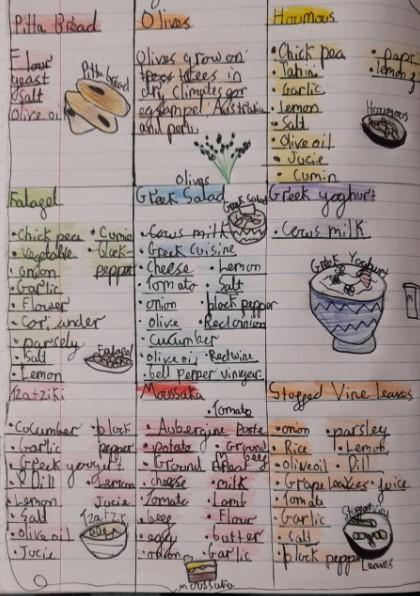 Pitta Bread
Flour
yeast
Salt
olive oil
Pitta bread
Olives
Olives grow on
trees in
dry climates for
and peru.
Olives
Houmous
• Chick pea
• Tahini
• Garlic
• Lemon
• Salt
• Olive oil
• Jucie
• Cumin
• lemon
Houmous
Falafel
• Chick pea
• Vegetable
• onion
• Garlic
• Flower
• parsely
• Salt
• Lemon
• Cumin
• black-
pepper
Falafel
Greek Salad
• Cows milk
• Greek Cuisine
• Cheese
• Tomato
• onion
• olive
• Cucumber
• olive oil
• bell Pepper
• Lemon
• Salt
• black pepper
• Red onion
• Red wine
vinegar
Greek Salad
Greek yoghurt
• Cows milk
Greek Yoghurt
Tzatziki
• Cocumber
• Garlic
• Greek yovgurt
• Dill
• Lemon
• Salt
• olive oil
• Jucie
• black
pepper
• Lemon
Jucie
Tzatziki
Moussaka
• Tomato
Paste
• Aubergine
• potato
• Ground
• cheese
• Tomato
• beef
• egg
• onion
• Ground
beef
• milk
• Lamb
• Flour
• butter
• Garlic
moussaka
Stuffed Vine leaves
• onion
• Rice
• olive oil
• Grape leaves
• Tomato
• Garlic
• Salt
• black pepper
• parsley
• Lemon
• Dill
• juice
Leaves